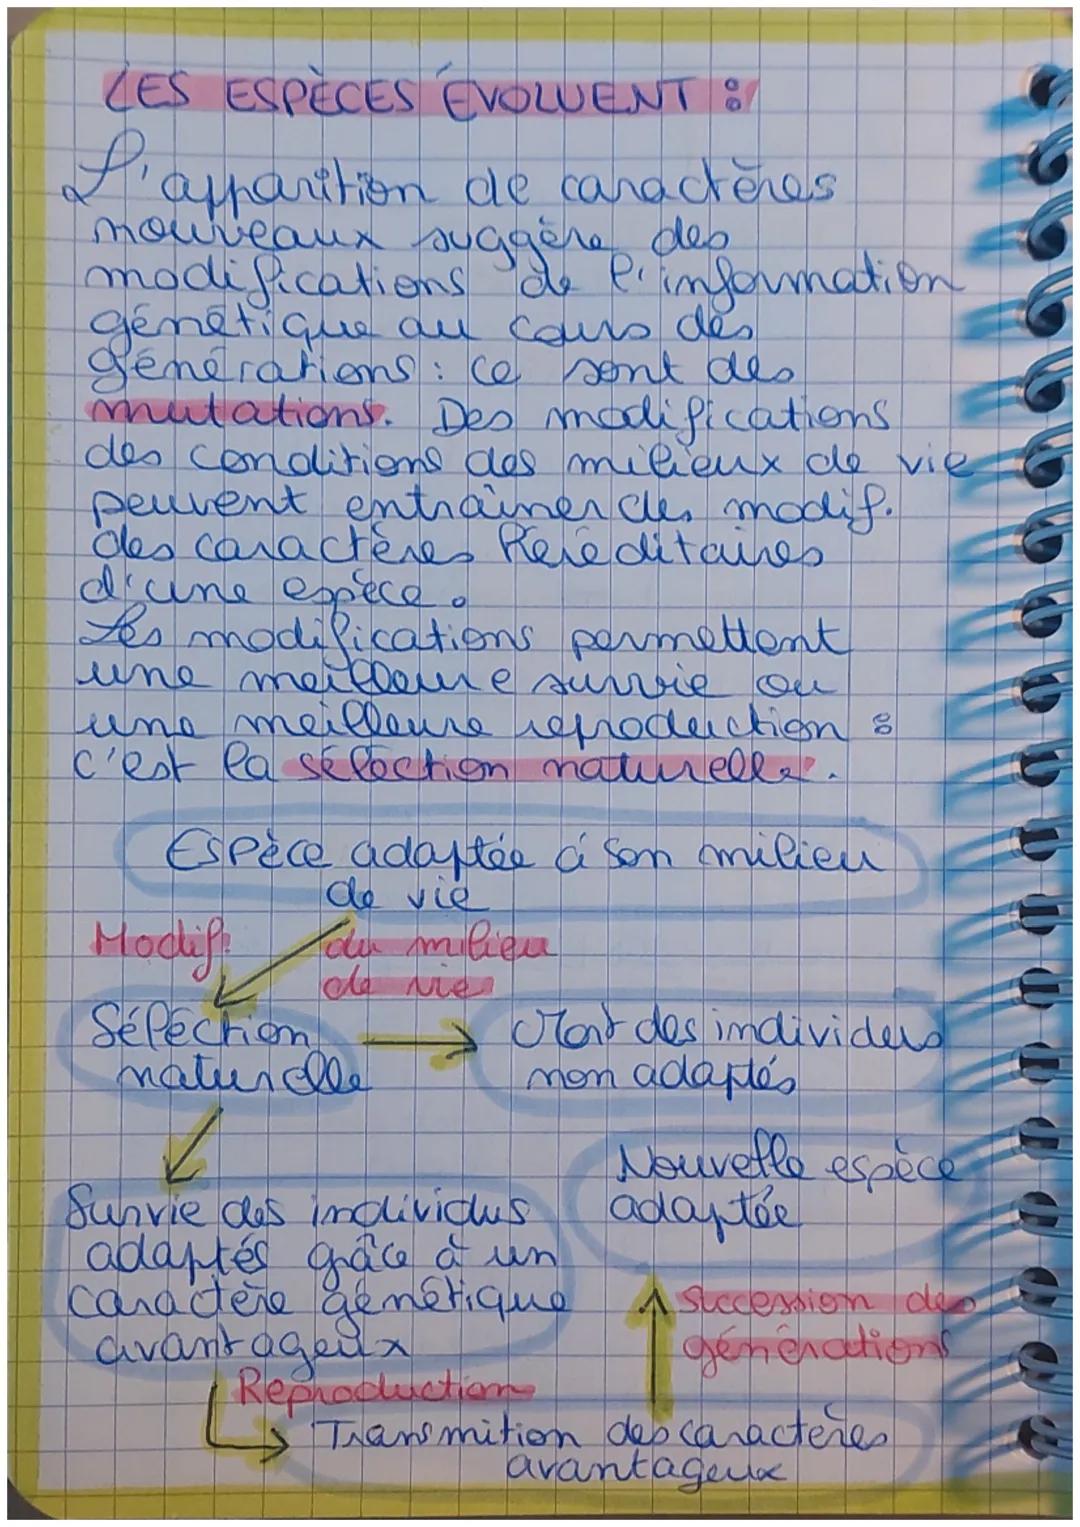 LES ESPÈCES ÉVOLUENT :
L'apparition de caractères
nouveaux suggère des
modifications de l'information
génétique au cours des
générations : ce sont des
mutations. Des modifications
des conditions des milieux de vie
peuvent entraîner des modif.
des caractères héréditaires
d'une espèce.
Les modifications permettent
une meilleure survie ou
une meilleure reproduction :
c'est la séléction naturelle.
Espèce adaptée à son milieu
de vie
Modif. du milieu
de vie
Séléction
naturelle
Mort des individus
non adaptés
Nouvelle espèce
adaptée
Survie des individus
adaptés grâce à un
caractère génétique
avantageux
Succession des
générations
Reproduction
Transmition des caractères
avantageux